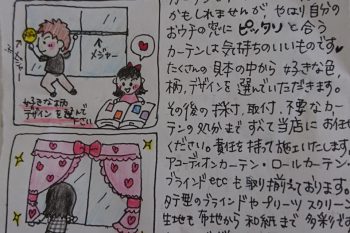 メジャー
メジャー
好きな柄
デザインを選んで
下さい
かもしれませんが、やはり自分の
おウチの窓に ピッタリ と合う
カーテンは気持ちのいいものです♥
たくさんの見本の中から 好きな色,
柄,デザインを選んでいただきます。
その後の採寸,取付,不要なカー
テンの処分まで すべて当店にお任せ
ください。責任を持ち施工いたします
アコーディオンカーテン・ロールカーテン・
ブラインドetcも取り揃えております。
タテ型のブラインドやプリーツスクリーン
生地も布地から和紙まで 多彩で